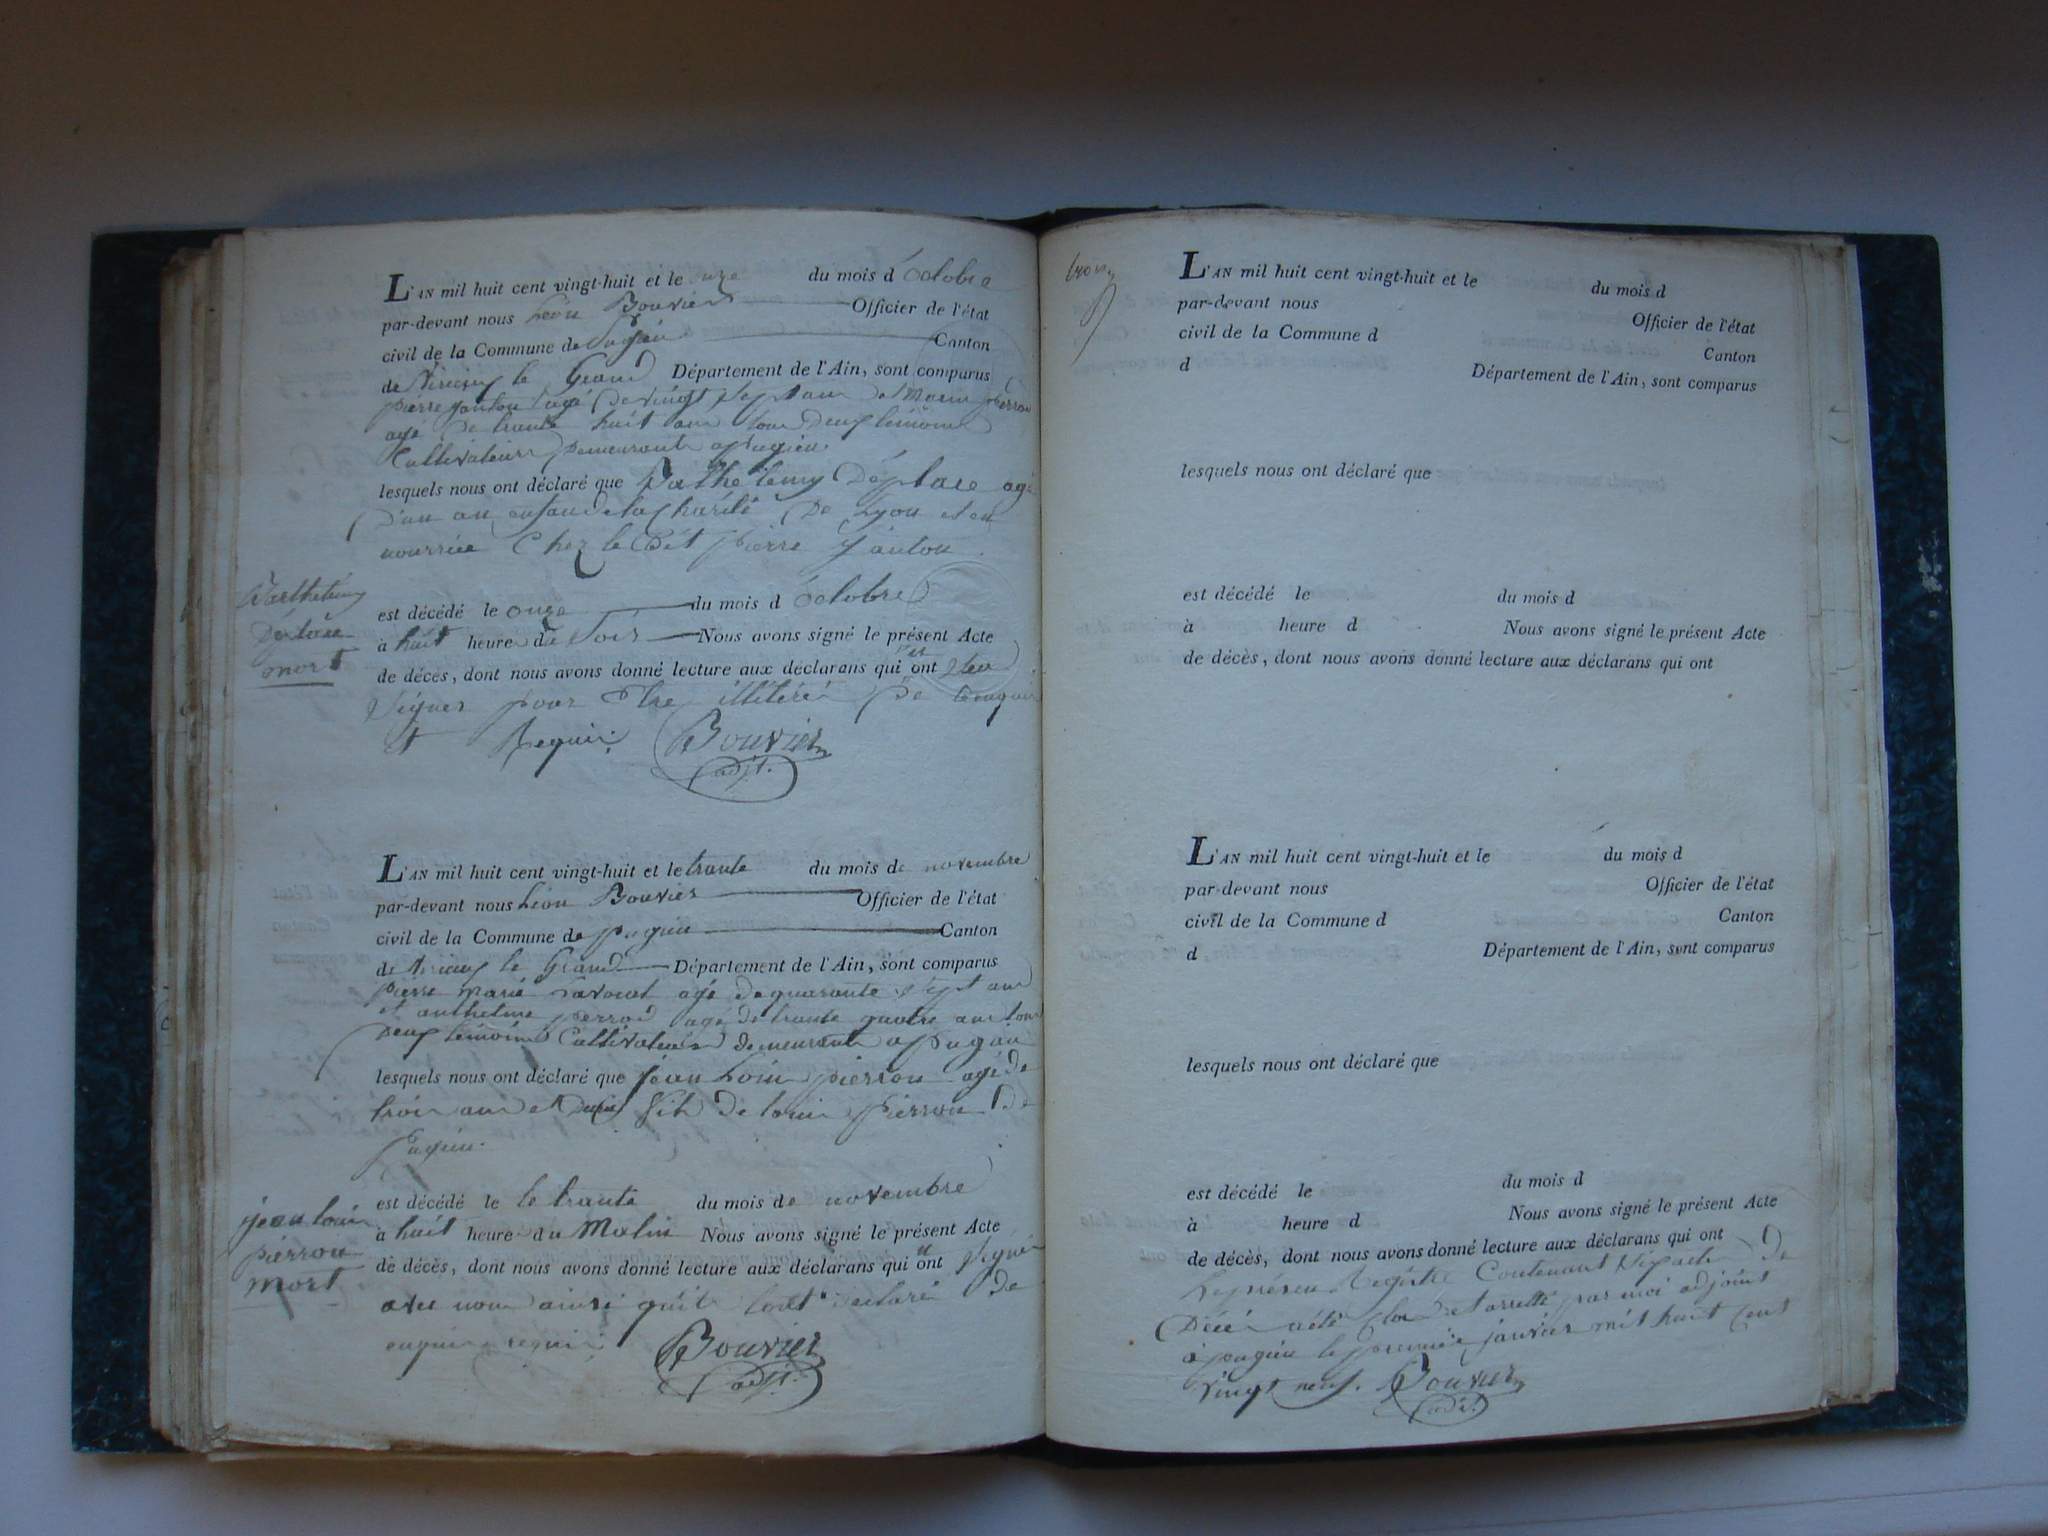 L'AN mil huit cent vingt-huit et le onze du mois d octobre
par-devant nous Léon Bouvier Officier de l'état
civil de la Commune de Pugieu Canton
de Virieux le Grand Département de l'Ain, sont comparus
pierre janton agé de vingt sept ans
agé de trante huit ans tous deux témoins
Cultivateurs demeurants a Pugieu.
lesquels nous ont déclaré que Barthélemy Déplace agé
d'un an enfan de la Charité De Lyon et en
nourrice Chez le Dit pierre Janton
Barthélemy
Déplace
mort
est décédé le onze du mois d octobre
à huit heure du Soir Nous avons signé le présent Acte
de décès, dont nous avons donné lecture aux déclarans qui ont
Signer pour être illitéré De
Requis Bouvier
adjt.
L'AN mil huit cent vingt-huit et le trante du mois de novembre
par-devant nous Léon Bouvier Officier de l'état
civil de la Commune de pugieu Canton
de Virieux le Grand Département de l'Ain, sont comparus
pierre marie agé de quarante sept ans
et anthelme perrod agé de trante quatre ans tous
Deux témoins Cultivateurs demeurants a Pugieu
lesquels nous ont déclaré que jean Louis pierron agé de
trois ans et Demi fils de louis pierron de
Pugieu.
jean louis
pierron
mort
est décédé le le trante du mois de novembre
à huit heure du Matin Nous avons signé le présent Acte
de décès, dont nous avons donné lecture aux déclarans qui ont Signé
avec nous ainsi qu'ils l'ont declaré De
requis Bouvier
adjt.
L'AN mil huit cent vingt-huit et le du mois d
par-devant nous Officier de l'état
civil de la Commune d Canton
d Département de l'Ain, sont comparus
lesquels nous ont déclaré que
est décédé le du mois d
à heure d Nous avons signé le présent Acte
de décès, dont nous avons donné lecture aux déclarans qui ont
L'AN mil huit cent vingt-huit et le du mois d
par-devant nous Officier de l'état
civil de la Commune d Canton
d Département de l'Ain, sont comparus
lesquels nous ont déclaré que
est décédé le du mois d
à heure d Nous avons signé le présent Acte
de décès, dont nous avons donné lecture aux déclarans qui ont
Le présen Registre Contenant Six acte De
Décés a été clos et arretté par moi adjoint
a pugieu le premier janvier mil huit cent
vingt neuf. Bouvier
adjt.